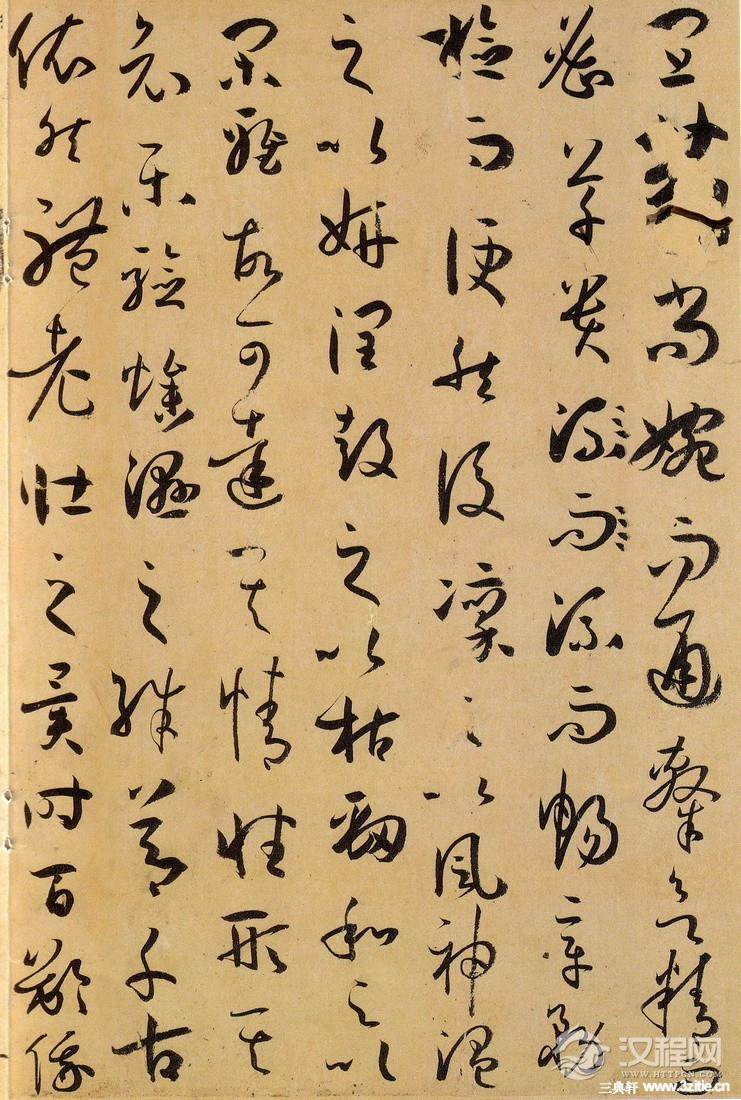 宜篆尚婉而通隸欲精而
密草貴流而流而暢章務
檢而便然後凜之以風神溫
之以妍潤鼓之以枯勁和之以
閑雅故可達其情性形其
哀樂驗燥濕之殊節千古
依然體老壯之異時百齡俄
汉程网
WWW.HTTPCN.COM
三典轩 www.3zitie.cn